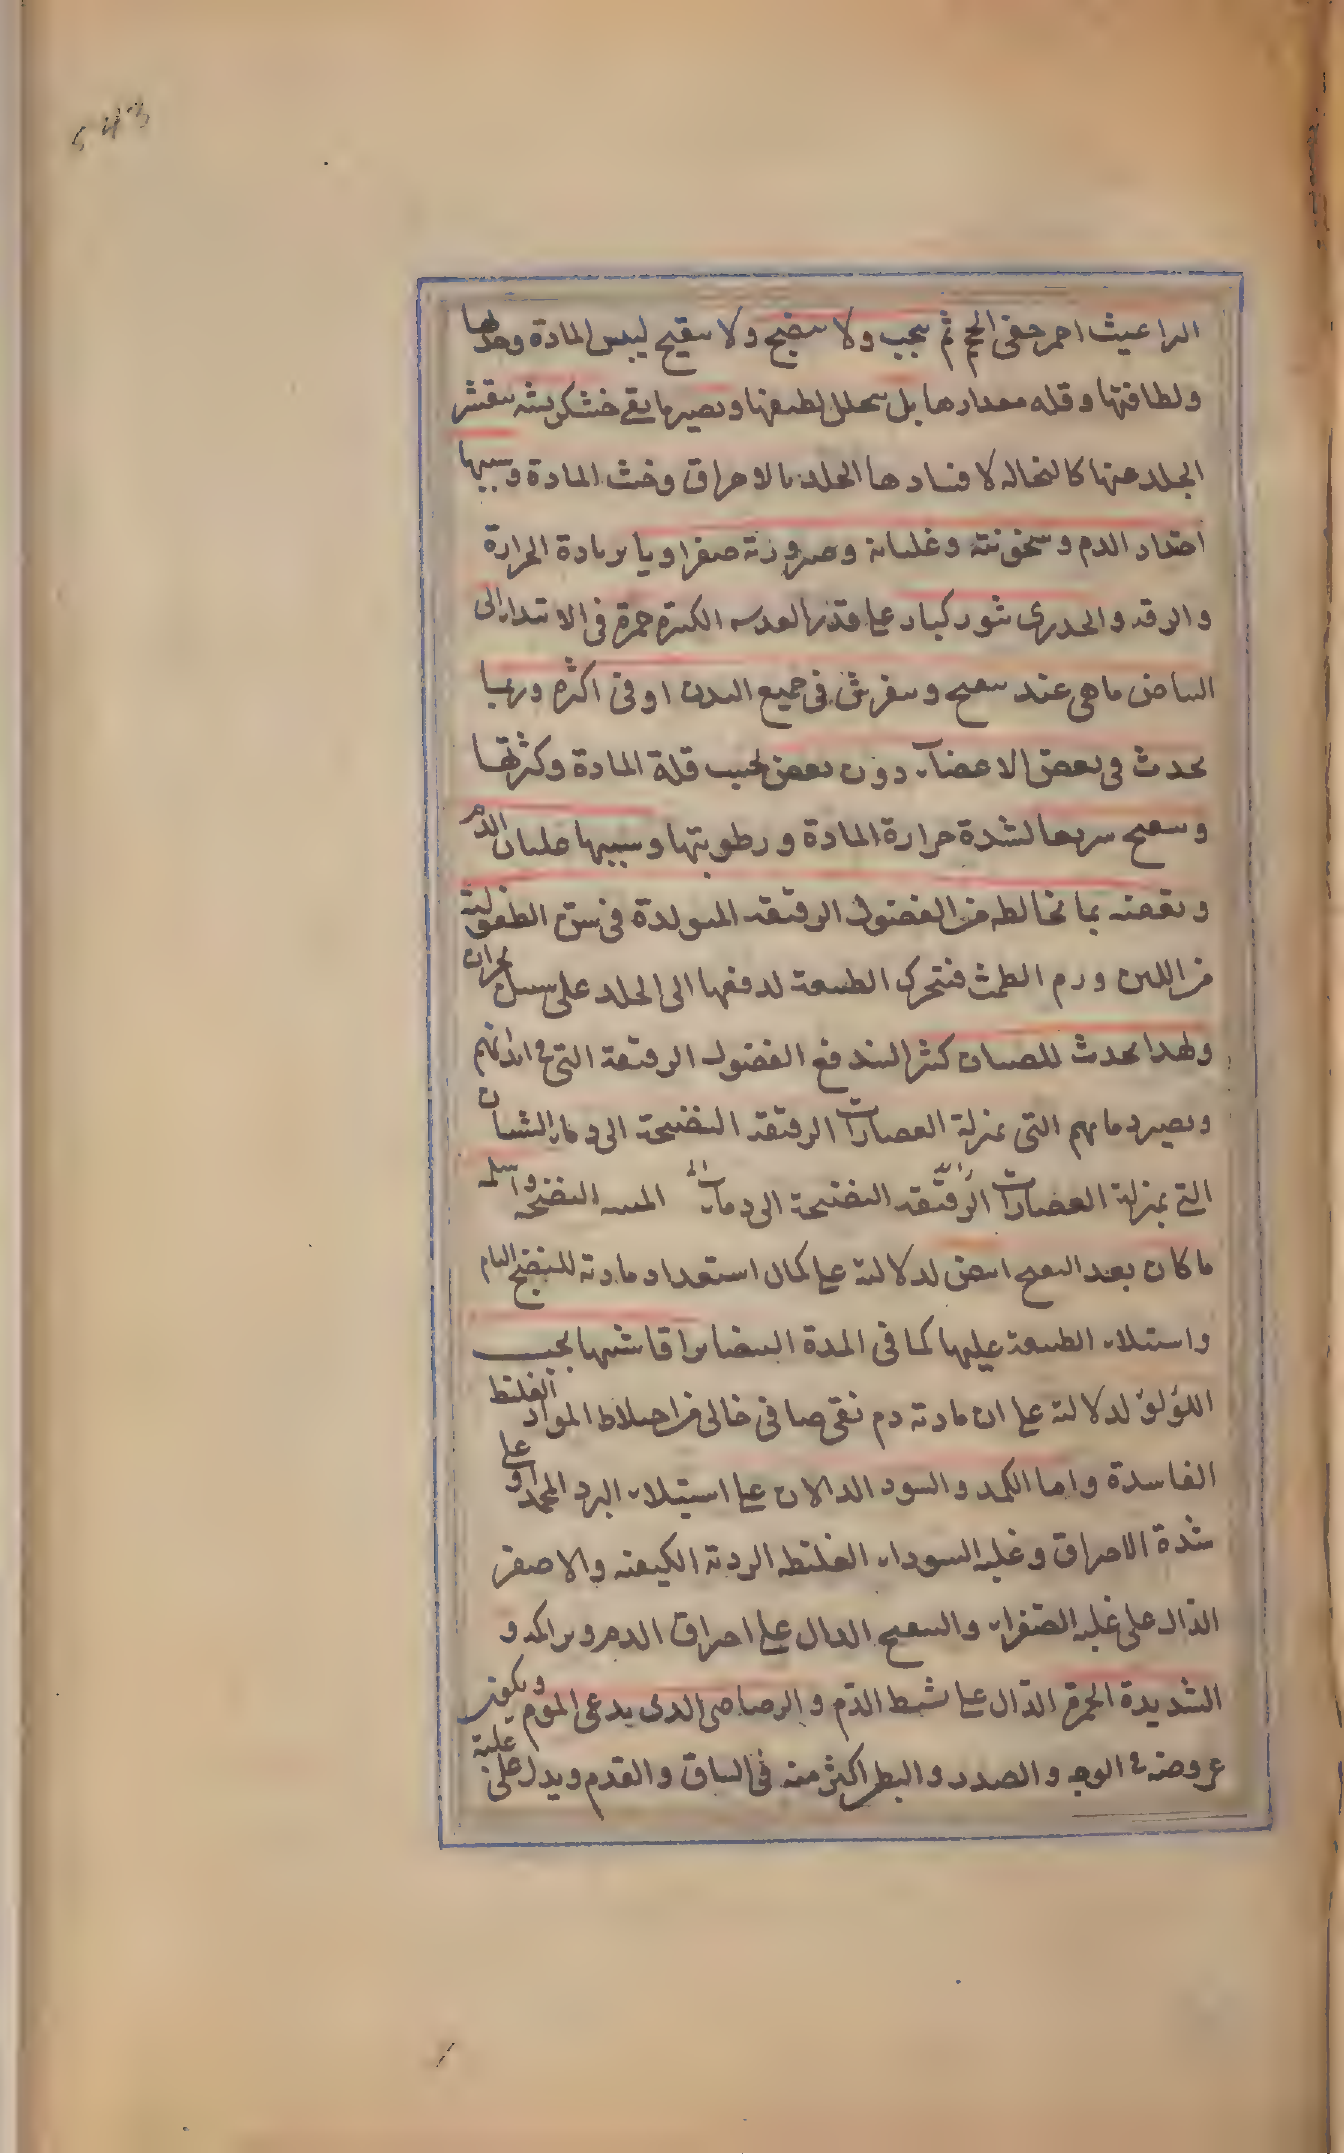 543
البراغيث احمر خفى الحجم ثم يجب ولا ينضج ولا يتقيح ليبس المادة وحدتها
ولطافتها وقلة مقدارها بل يتحلل لطيفها ويصير ما بقى خشكريشه يتقشر
الجلد عنها كالنخاله لافسادها الجلد بالاحراق وخبث المادة وسببها
احتداد الدم وسخونته وغليانه وصيرورته صفراويا بزيادة الحرارة
والرقه والجدرى بثور كبار على قدر العدسه الكبيرة حمرة فى الابتداء الى
البياض ما هى عند تتقيح وتتفرش فى جميع البدن او فى اكثره وربما
يحدث فى بعض الاعضآء دون بعض بحسب قلة المادة وكثرتها
وتتقيح سريعا لشدة حرارة المادة ورطوبتها وسببها غليان الدم
وتعفنه بما يخالطه من الفضول الرقيقه المتولدة فى سن الطفولية
من اللبن ودم الطمث فتتحرك الطبيعة لدفعها الى الجلد على سبيل بحران
ولهذا يحدث للصبيان كثيرا ليندفع الفضول الرقيقة التى فى ابدانهم
ويصير دمائهم التى بمنزلة العصارات الرقيقه النضيجة الى دماء الشبان
التى بمنزلة العصارات الرقيقه النضيجة الى دماء المتينه النضيجه واسلمه
ما كان بعد التقيح ابيض لدلالته على كمال استعداد مادته للنضج التام
واستيلاء الطبيعة عليها كما فى المدة البيضا براقا شبيها بحب
اللؤلؤ لدلالته على ان مادته دم نقى صافى خالى من اختلاط المواد الغليظ
الفاسدة واما الكمد والسود الدالان على استيلاء البرد المجمد او على
شدة الاحراق وغلبه السوداء الغليظه الرديه الكيفيه والاصفر
الدال على غلبه الصفراء والبنفسجى الدال على احراق الدم وتراكمه و
الشديدة الحمرة الدال على تشيط الدم والرصاصى الذى يدعى الموم ويكون
عروضه فى الوجه والصدر والبطن اكثر منه فى الساق والقدم ويدل على غلبة